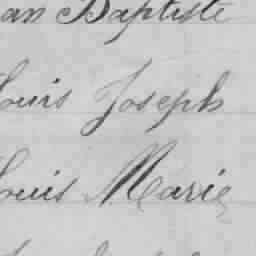 an Baptiste
Louis Joseph
Louis Marie